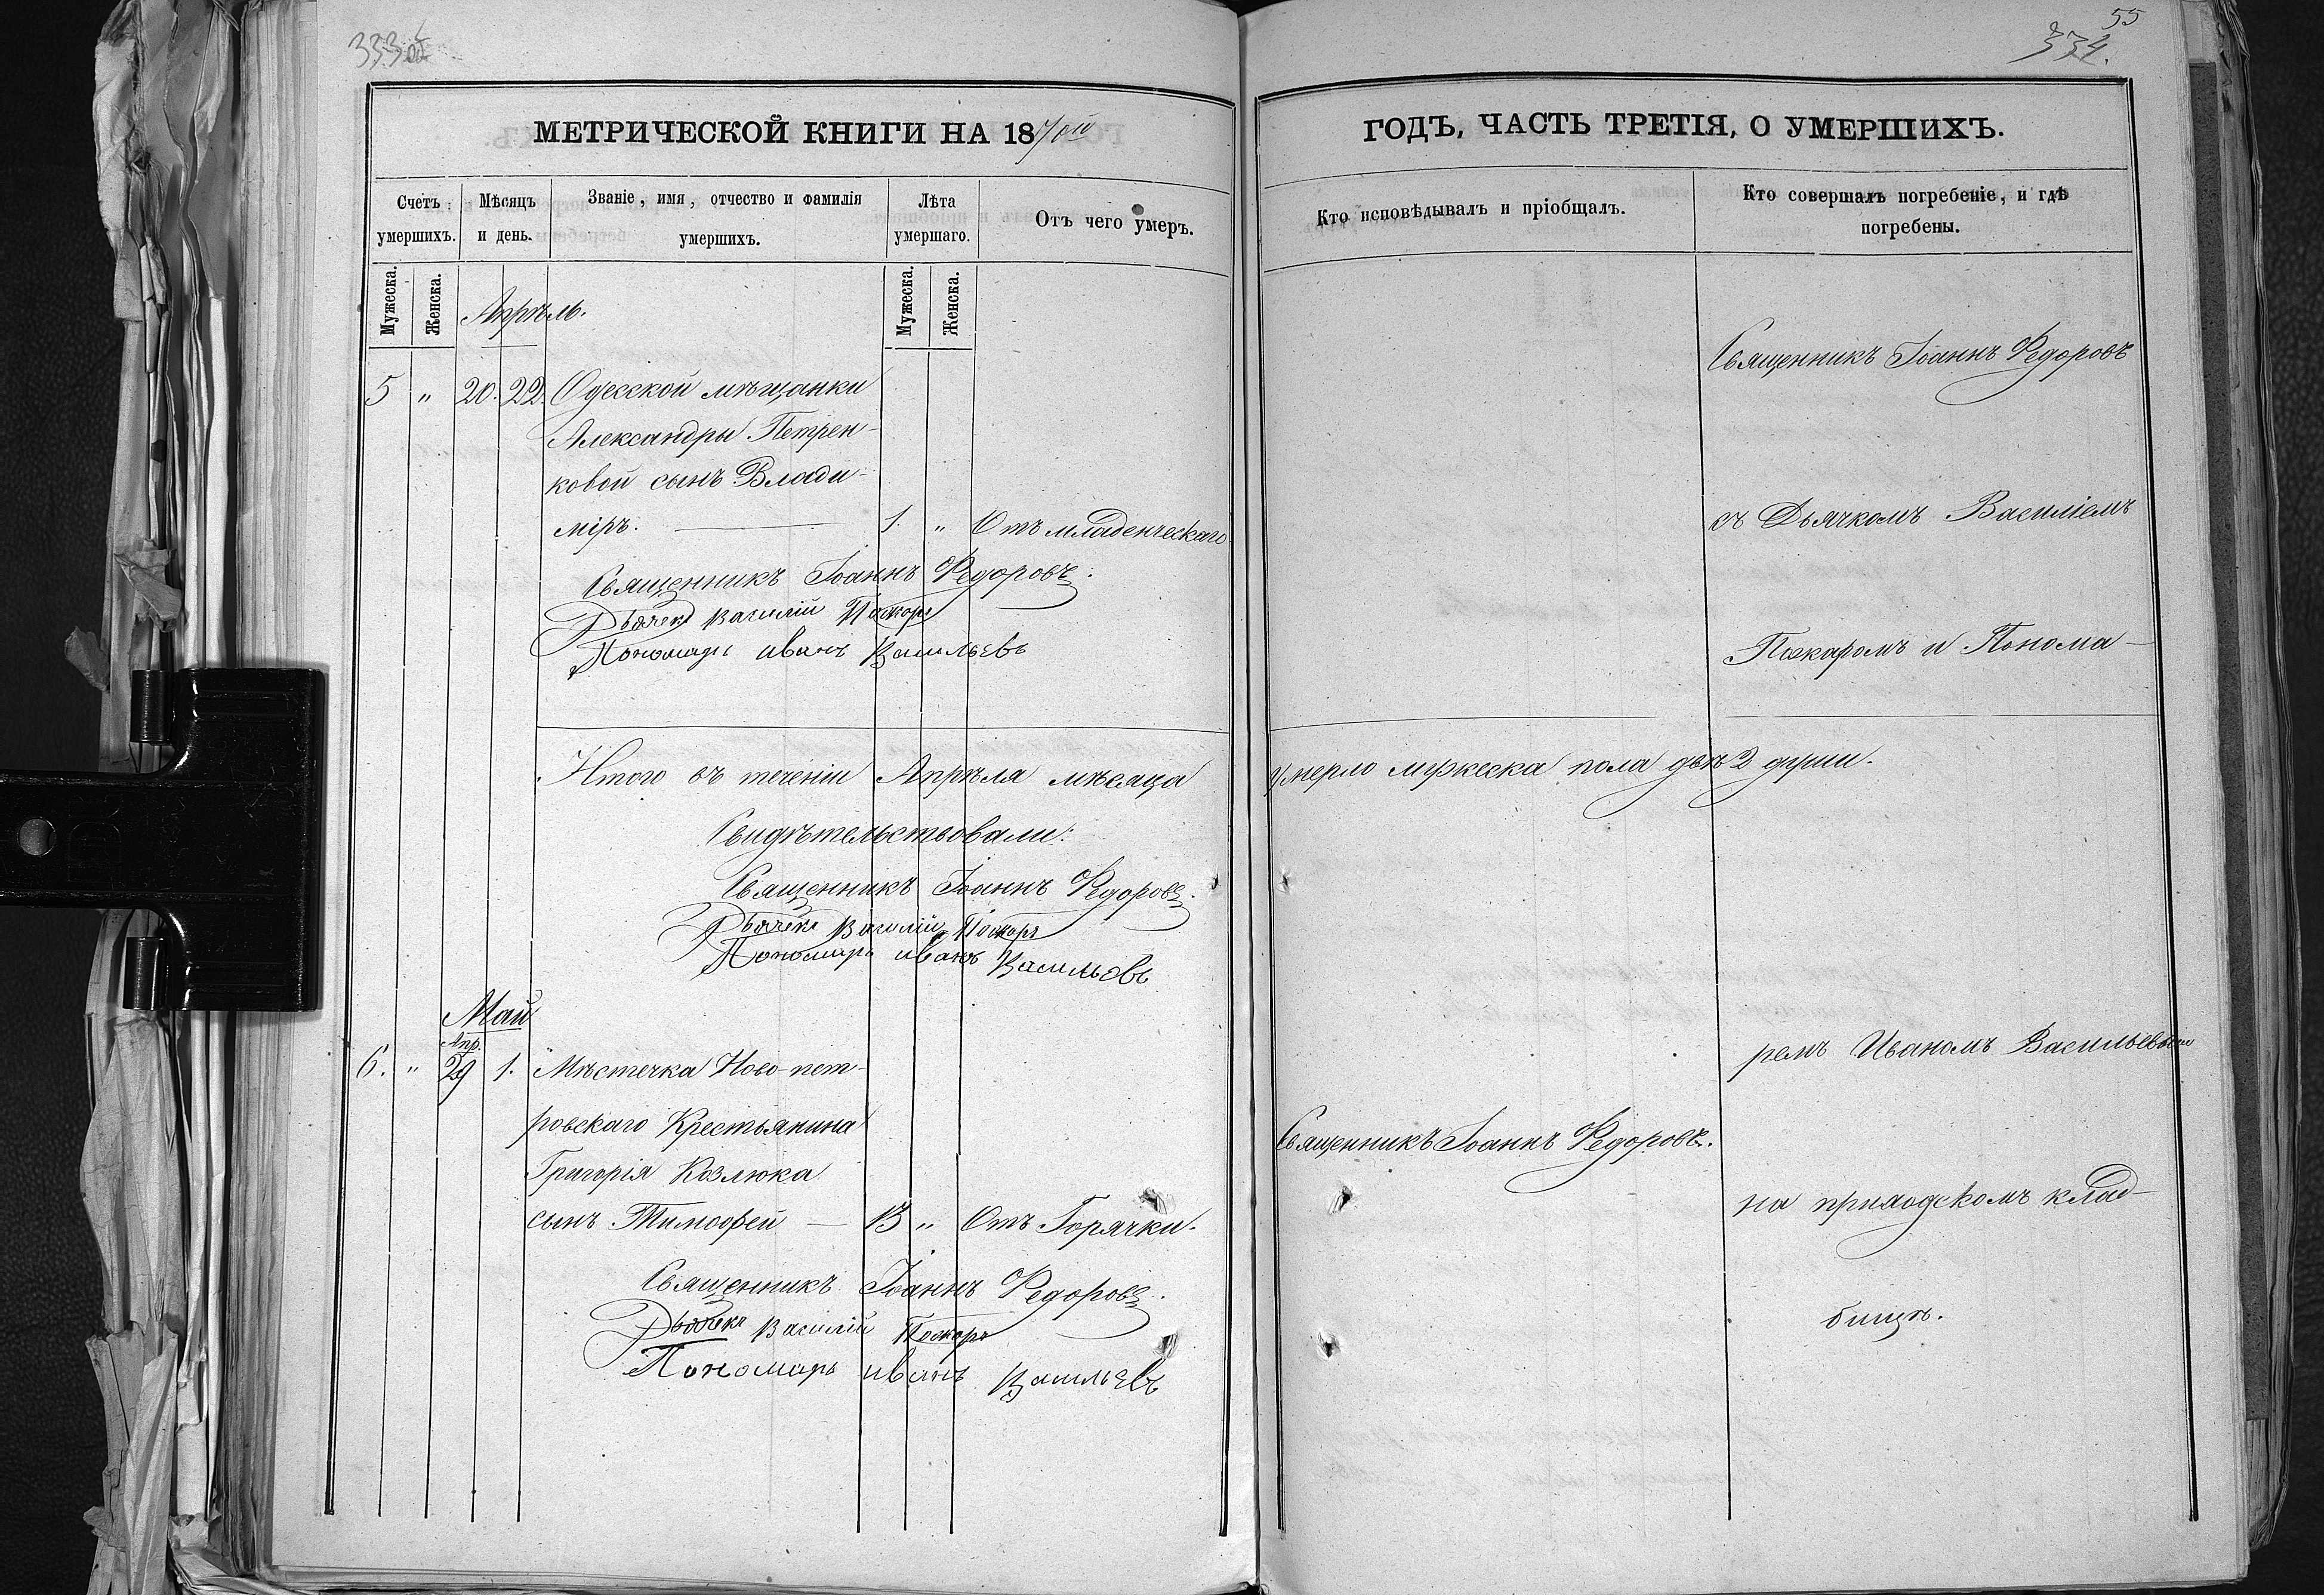 333 об
МЕТРИЧЕСКОЙ КНИГИ НА 1870й
Счетъ умершихъ.
Мѣсяцъ и день.
Званіе, имя, отчество и фамилія умершихъ.
Лѣта умершаго.
Отъ чего умеръ.
Мужеска.
Женска.
Апрѣль.
Мужеска.
Женска.
5 " 20. 22. Одесской мѣщанки
Александры Петрен-
ковой сынъ Влади-
міръ. — 1. " Отъ младенческаго
Священникъ Іоаннъ Федоровъ.
Дьячекъ Василій Поскоръ
Пономарь иванъ Васильевъ
Итого въ теченіи Апрѣля мѣсяца
Свидѣтельствовали:
Священникъ Іоаннъ Федоровъ.
Дьячекъ Василій Поскоръ
Пономарь иванъ Васильевъ
Май
Апр.
6. " 29 1. Мѣстечка Ново-пет-
ровскаго Крестьянина
Григорія Козлюка
сынъ Тимофей — 13 " Отъ Горячки.
Священникъ Іоаннъ Федоровъ.
Дьячекъ Василій Поскоръ
Пономарь иванъ Васильевъ
55
334.
ГОДЪ, ЧАСТЬ ТРЕТІЯ, О УМЕРШИХЪ.
Кто исповѣдывалъ и пріобщалъ.
Кто совершалъ погребеніе, и гдѣ
погребены.
Священникъ Іоаннъ Федоровъ
съ Дьячкомъ Василіемъ
Поскаромъ и Понома-
умерло мужеска пола двѣ 2 души.
ремъ Иваномъ Васильевымъ
Священникъ Іоаннъ Федоровъ.
на приходскомъ клад-
бищѣ.